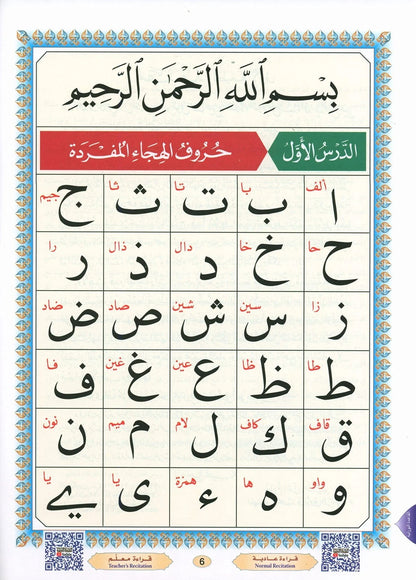 بِسْمِ ٱللَّهِ ٱلرَّحْمَٰنِ ٱلرَّحِيمِ
الدَّرْسُ الأَوَّلُ حُرُوفُ الهِجَاءِ المُفْرَدَة
ألف با تا ثا جيم
ا ب ت ث ج
حا خا دال ذال را
ح خ د ذ ر
زا سين شين صاد ضاد
ز س ش ص ض
طا ظا عين غين فا
ط ظ ع غ ف
قاف كاف لام ميم نون
ق ك ل م ن
واو ها همزة يا يا
و ه ء ى ے
قراءة عادية 6 قراءة معلم
Normal Recitation Teacher's Recitation